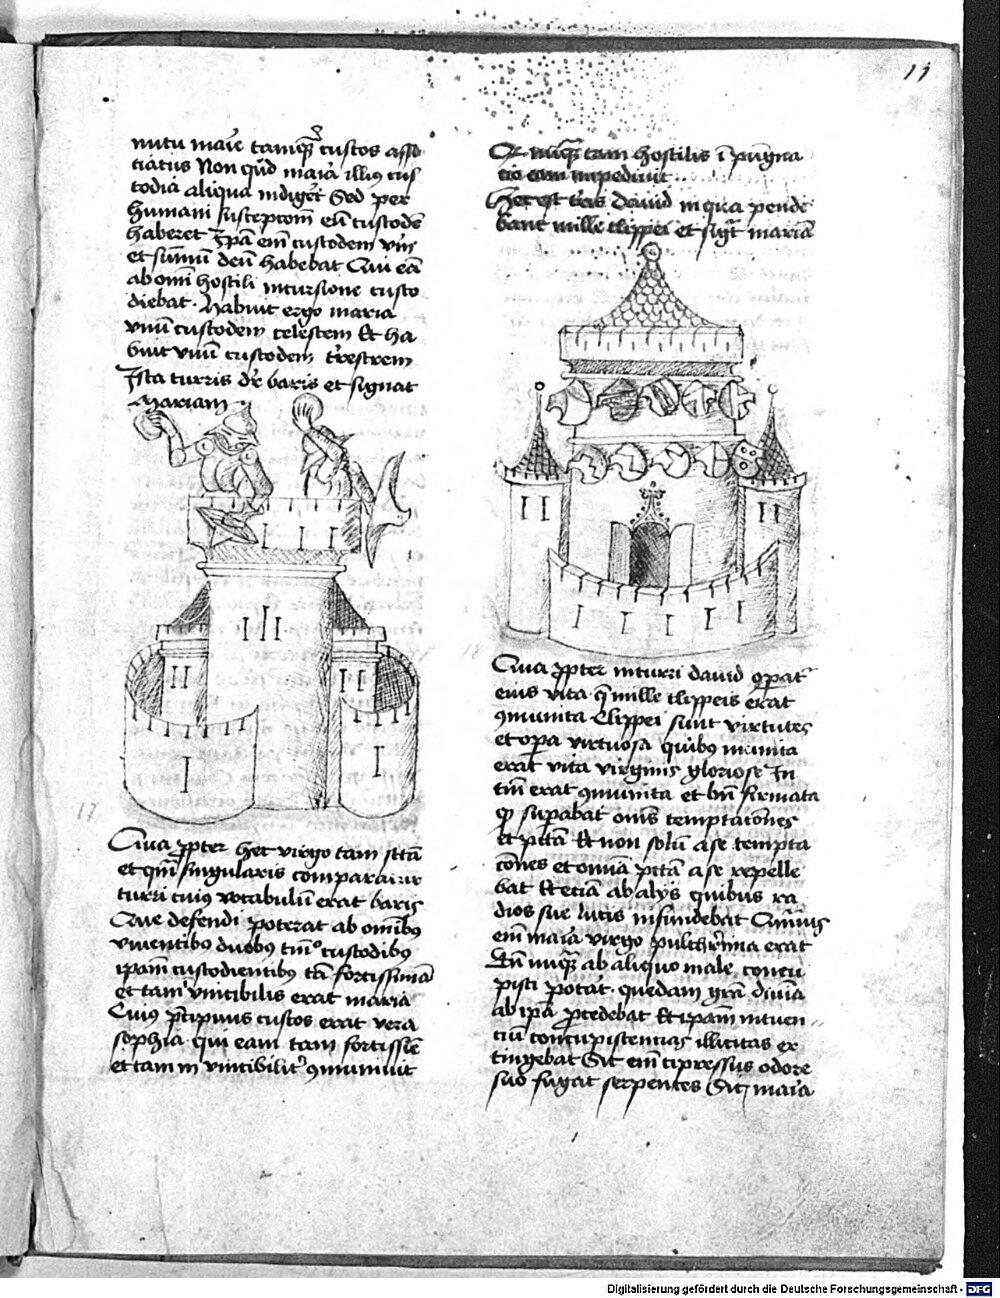 11
nutu marie tamquam custos asso
ciatus Non quod maria illius cus
todia aliqua indigeret Sed per
humani susceptorem eum custodem
haberet Ipsa enim custodem
et summum deum habebat Qui eam
ab omni hostili incursione custo
diebat. Habuit ergo maria
unum custodem celestem Et ha
buit unum custodem terrestrem
Ista turris dicitur baris et signat
Mariam
17
Quapropter hec virgo tam sancta
et quam singularis comparatur
turri cuius vocabulum erat baris
Que defendi poterat ab omnibus
viventibus duobus tantum custodibus
ipsam custodientibus tam fortissima
et tam invincibilis erat maria
Cuius precipuus custos erat vera
sophia qui eam tam fortissime
et tam invincibiliter communiuit
Quod nunquam eam hostilis inpugna
tio eam impediuit
Hec est turris dauid in qua pende
bant mille clippei et signat mariam
18
Quapropter in turri dauid comparatur
eius vita que mille clippeis erat
communita Clippei sunt virtutes
et opera virtuosa quibus munita
erat vita virginis gloriose In
tantum erat communita et bene firmata
quod superabat omnes temptationes
et peccata Et non solum a se tempta
tiones et omnia peccata a se repelle
bat Et etiam ab aliis quibus ra
dios sue lucis infundebat Quamuis
enim maria virgo pulcherrima erat
tamen nunquam ab aliquo male concu
pisci poterat. quedam gratia divina
ab ipsa procedebat Et ipsam intuen
tium concupiscentias illicitas ex
tingebat Sicut enim cipressus odore
suo fugat serpentes Sic maria
Digitalisierung gefördert durch die Deutsche Forschungsgemeinschaft - DFG